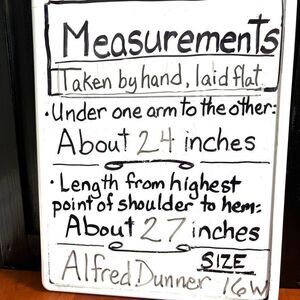 Measurements
Taken by hand, laid flat
• Under one arm to the other:
About 24 inches
• Length from highest
point of shoulder to hem:
About 27 inches
SIZE
Alfred Dunner 16W